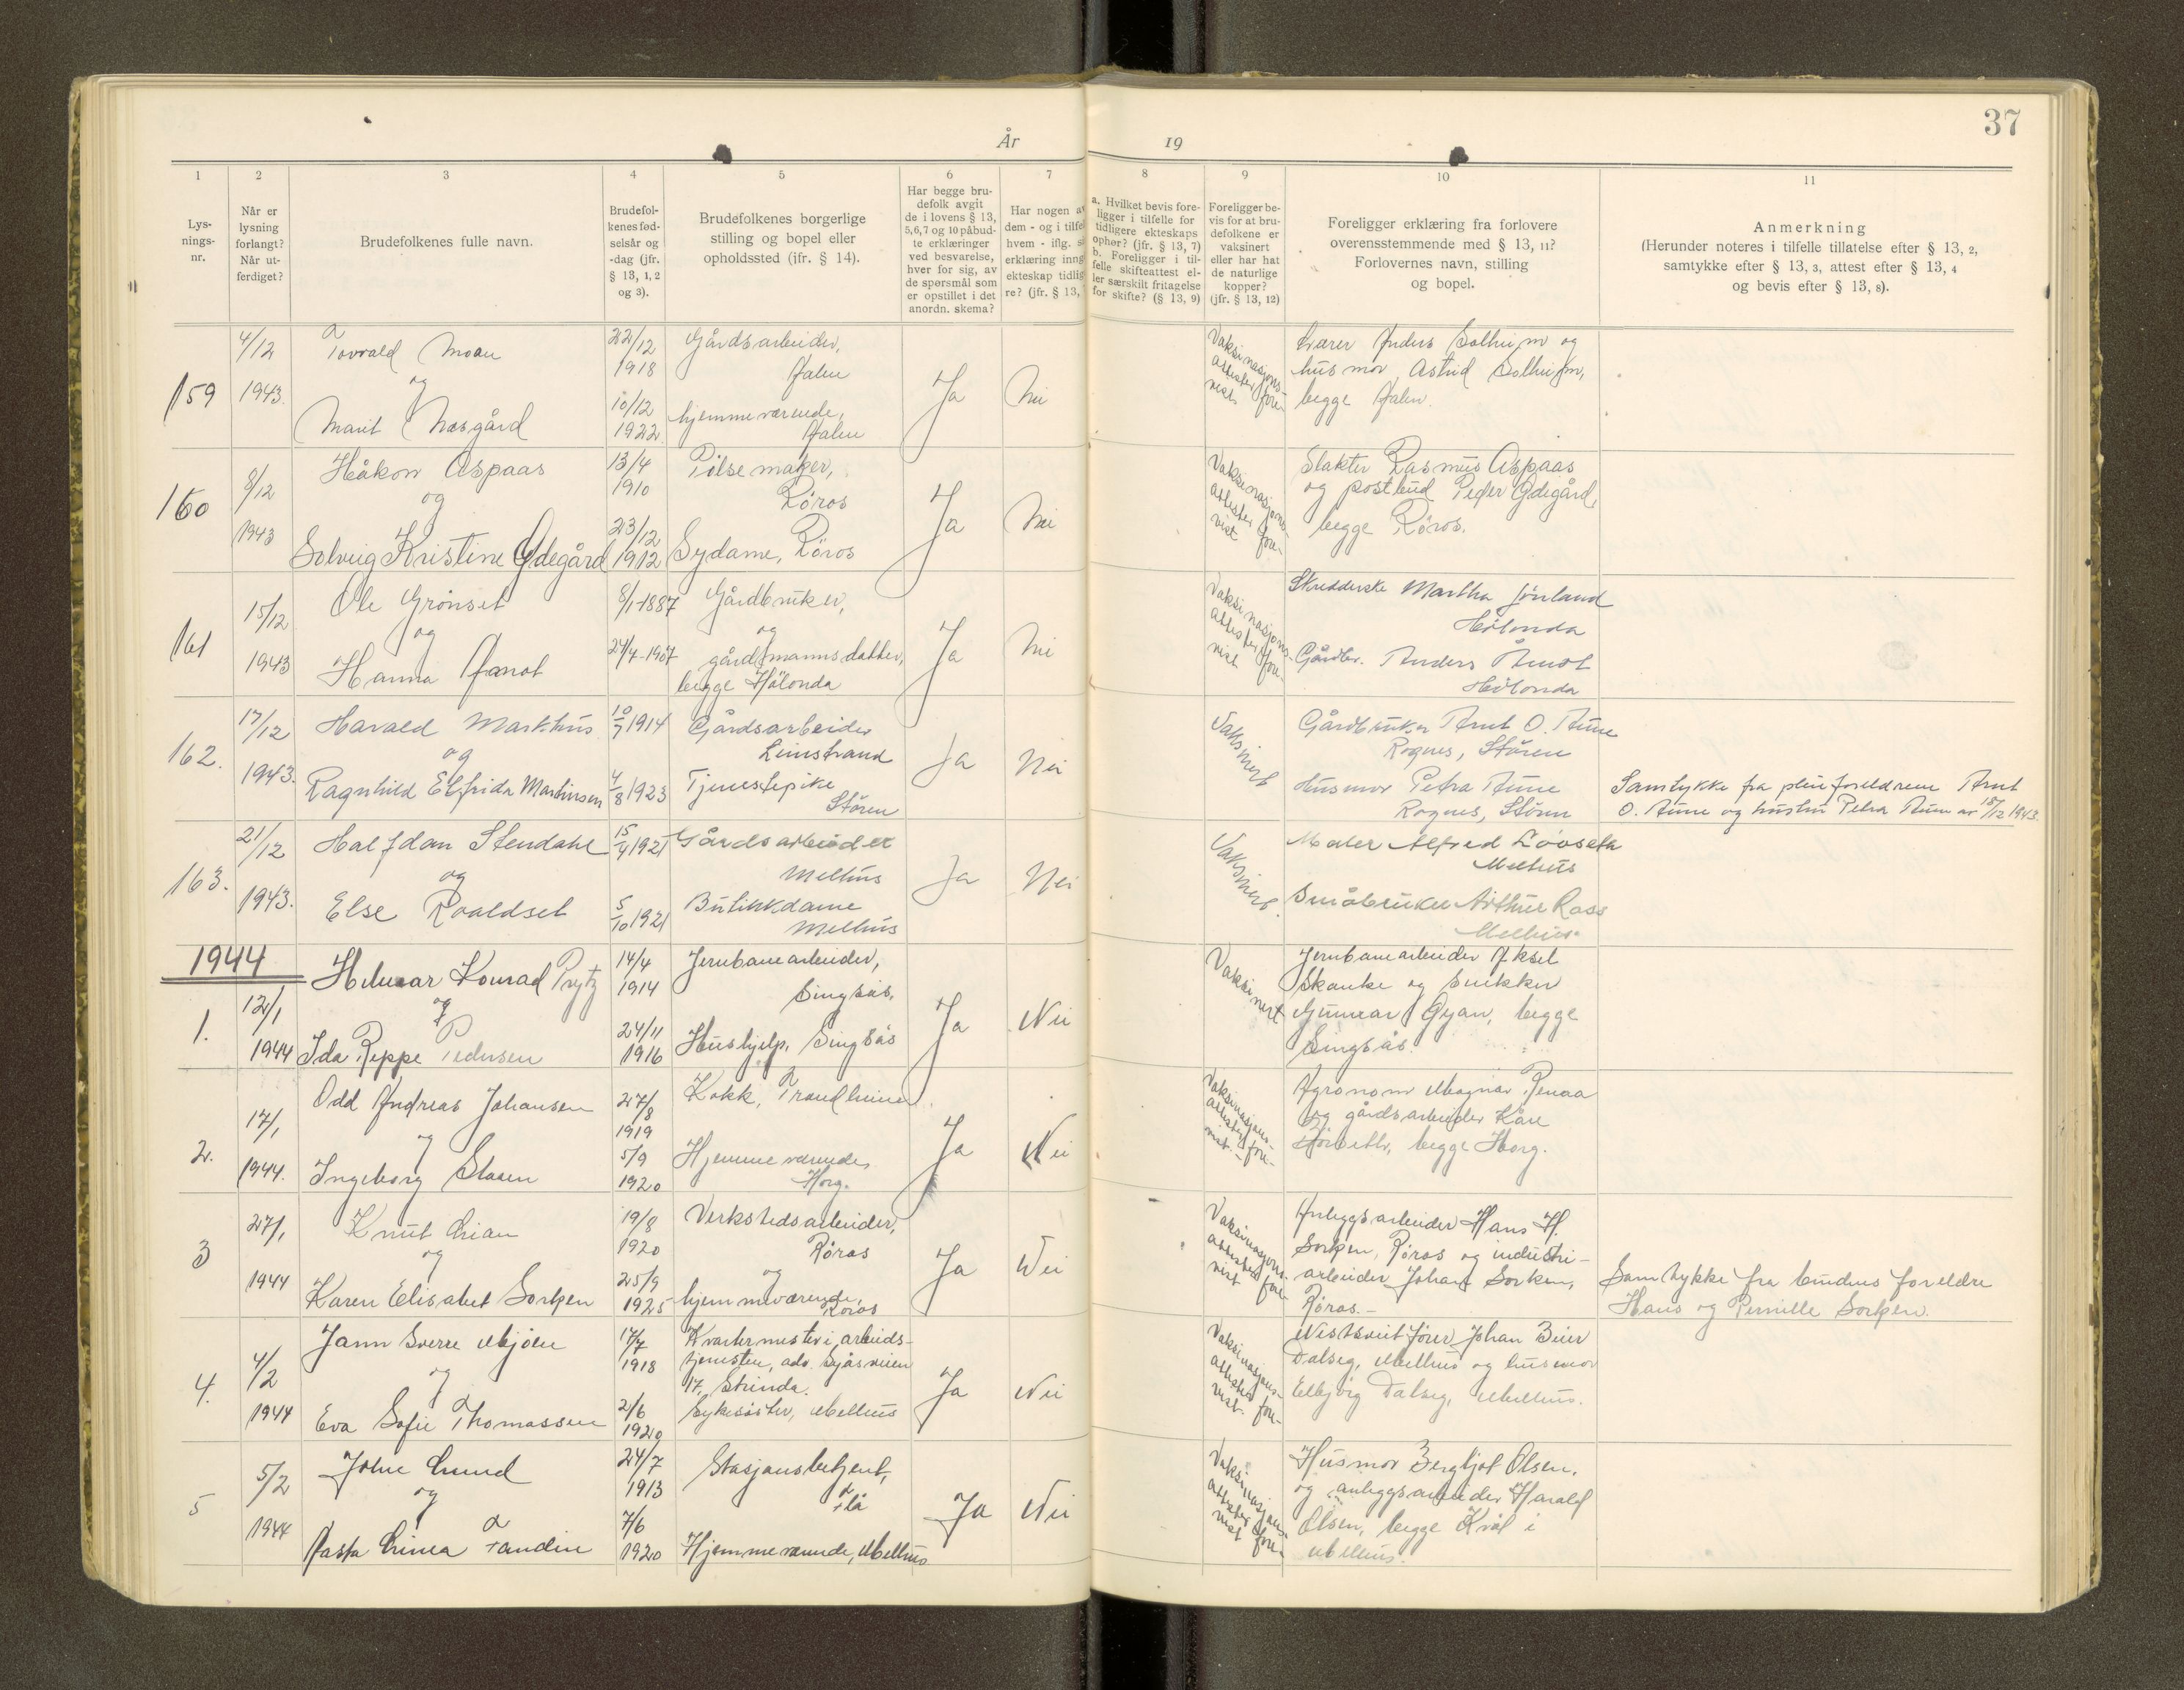 37
År 19
1
Lys-
nings-
nr.
2
Når er
lysning
forlangt?
Når ut-
ferdiget?
3
Brudefolkenes fulle navn.
4
Brudefol-
kenes fød-
selsår og
-dag (jfr.
§ 13, 1, 2
og 3).
5
Brudefolkenes borgerlige
stilling og bopel eller
opholdssted (jfr. § 14).
6
Har begge bru-
defolk avgit
de i lovens § 13,
5,6,7 og 10 påbud-
te erklæringer
ved besvarelse,
hver for sig, av
de spørsmål som
er opstillet i det
anordn. skema?
7
Har nogen a
dem - og i tilfel
hvem - iflg. s
erklæring inng
ekteskap tidlig
re? (jfr. § 13,
8
a. Hvilket bevis fore-
ligger i tilfelle for
tidligere ekteskaps
ophør? (jfr. § 13, 7)
b. Foreligger i til-
felle skifteattest el-
ler særskilt fritagelse
for skifte? (§ 13, 9)
9
Foreligger be-
vis for at bru-
defolkene er
vaksinert
eller har hat
de naturlige
kopper?
(jfr. § 13, 12)
10
Foreligger erklæring fra forlovere
overensstemmende med § 13, 11?
Forlovernes navn, stilling
og bopel.
11
Anmerkning
(Herunder noteres i tilfelle tillatelse efter § 13, 2,
samtykke efter § 13, 3, attest efter § 13, 4
og bevis efter § 13, 8).
159
4/12
1943.
Torvald Moan
og
Marit Næsgård
22/12
1918
10/12
1922
Gårdsarbeider,
Ålen
hjemmeværende,
Ålen
Ja
Nei
Vaksinasjons-
attester fore-
vist.
Lærer Anders Solheim og
husmor Astrid Solheim,
begge Ålen.
160
8/12
1943
Håkon Aspaas
og
Solveig Kristine Ødegård
13/4
1910
23/12
1912
Pølsemaker,
Röros
Sydame, Röros
Ja
Nei
Vaksinasjons-
attester fore-
vist
Slakter Rasmus Aspaas
og postbud Peder Ødegård,
begge Röros.
161
15/12
1943
Ole Grönset
og
Hanna Åmot
8/1-1887
24/4-1907
Gårdbruker,
og
gårdmannsdatter,
begge Hölonda
Ja
Nei
Vaksinasjons-
attester fore-
vist
Skredderske Martha
Hölonda
Gårdbr. Anders Åmot
Hölonda
162.
17/12
1943.
Harald Markhus
og
Ragnhild Elfrida Martinsen
10/7 1914
4/8 1923
Gårdsarbeider
Leinstrand
Tjenestepike
Stören
Ja
Nei
Vaksinert
Gårdbruker Arnt O. Aune
Rognes, Stören
Husmor Petra Aune
Rognes, Stören
Samtykke fra pleieforeldrene Arnt
O. Aune og hustru Petra Aune av 18/12 1943.
163.
21/12
1943.
Halfdan Stendahl
og
Else Roaldset
15/4 1921
5/10 1921
Gårdsarbeider
Melhus
Butikkdame
Melhus
Ja
Nei
Vaksinert.
Maler Alfred Lövseth
Melhus
Småbruker Arthur Ross
Melhus.
1944
1.
12/1
1944
Helmar Konrad Prytz
og
Ida Reppe Pedersen
14/4
1914
24/11
1916
Jernbanearbeider,
Singsås.
Hushjelp, Singsås
Ja
Nei
Vaksinert
Jernbanearbeider Aksel
Skanke og snekker
Gunnar Gyan, begge
Singsås.
2.
17/1
1944.
Odd Andreas Johansen
og
Ingeborg Staven
27/8
1919
5/9
1920
Kokk, Trondheim
Hjemmeværende,
Horg.
Ja
Nei
Vaksinasjons-
attester fore-
vist.
Agronom Magnar Renaa
og gårdsarbeider Kåre
begge Horg.
3
27/1
1944
Knut Lrian
og
Karen Elisabet Sorken
19/8
1920
25/9
1925
Verkstedsarbeider,
Röros
og
hjemmeværende,
Röros
Ja
Nei
Vaksinasjons-
attester fore-
vist
Anleggsarbeider Hans H.
Sorken, Röros og industri-
arbeider Johan Sorken,
Röros.-
Samtykke fra brudens foreldre
Hans og Pernille Sorken.
4.
4/2
1944
Jann Sverre Mjöen
og
Eva Sofie Thomassen
17/7
1918
2/6
1920
Kvartermester i arbeids-
tjenesten, adr. Sjåsveien
17, Strinda.
Sykesöster, Melhus
Ja
Nei
Vaksinasjons-
attester fore-
vist.
Johan Beier
Dalseg, Melhus og husmor
Eldbjörg Dalseg, Melhus.
5
5/2
1944
John Lund
og
Aasta Linea Fandin
24/7
1913
7/6
1920
Stasjonsbetjent,
Flå
Hjemmeværende, Melhus
Ja
Nei
Vaksinasjons-
attester fore-
vist
Husmor Bergljot Olsen,
og anleggsarbeider Harald
Olsen, begge Kvål i
Melhus.